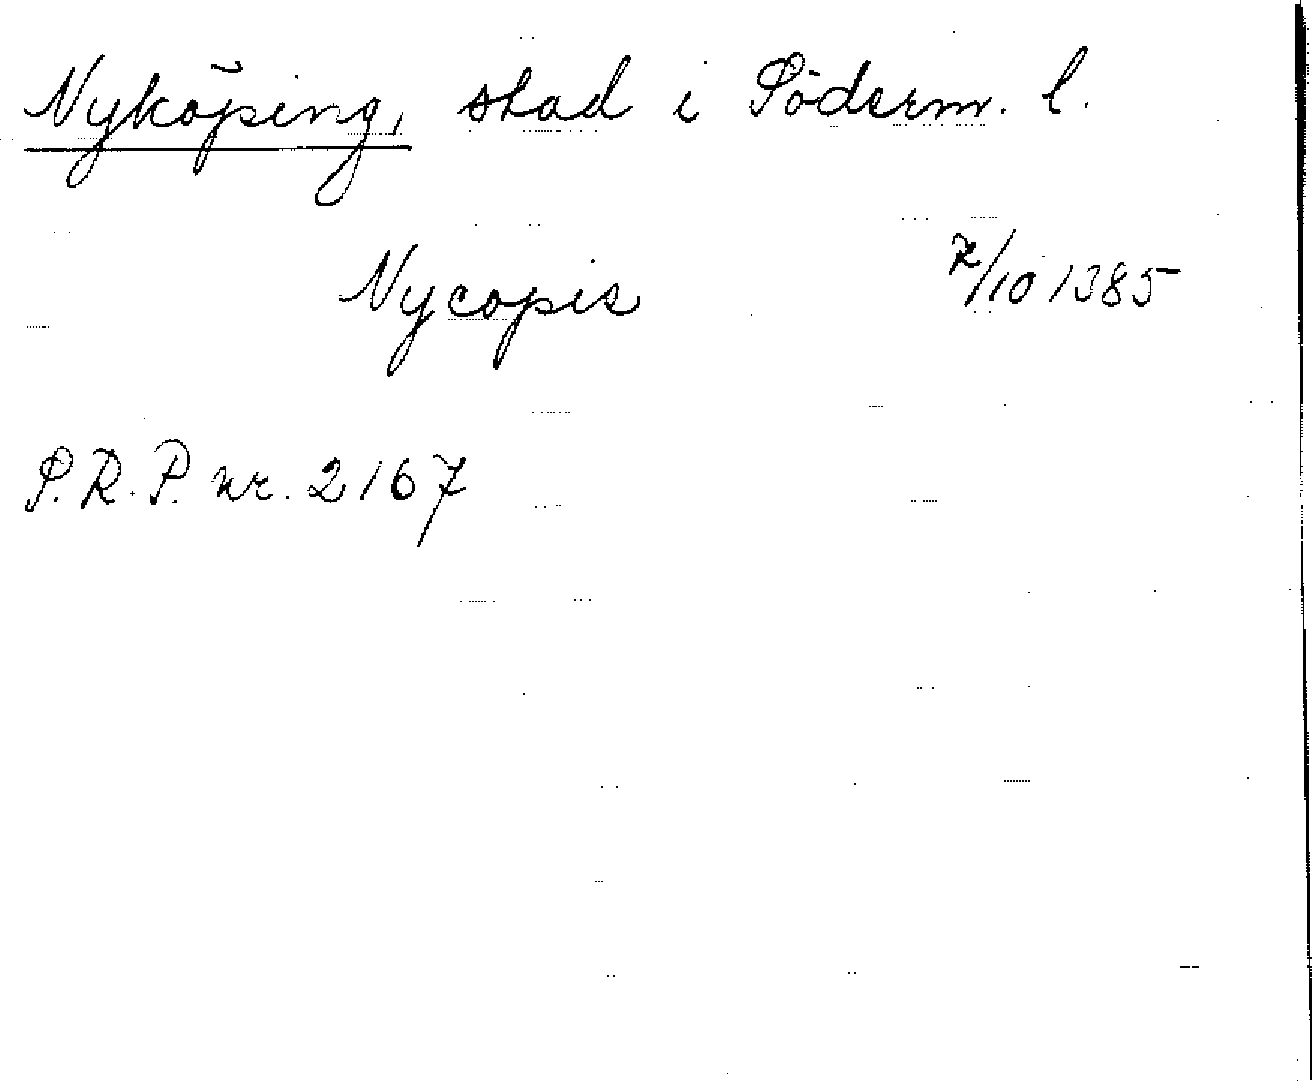 Nyköping, stad i Söderm. l.
Nycopis /10 1385
P.R.P. nr. 2167